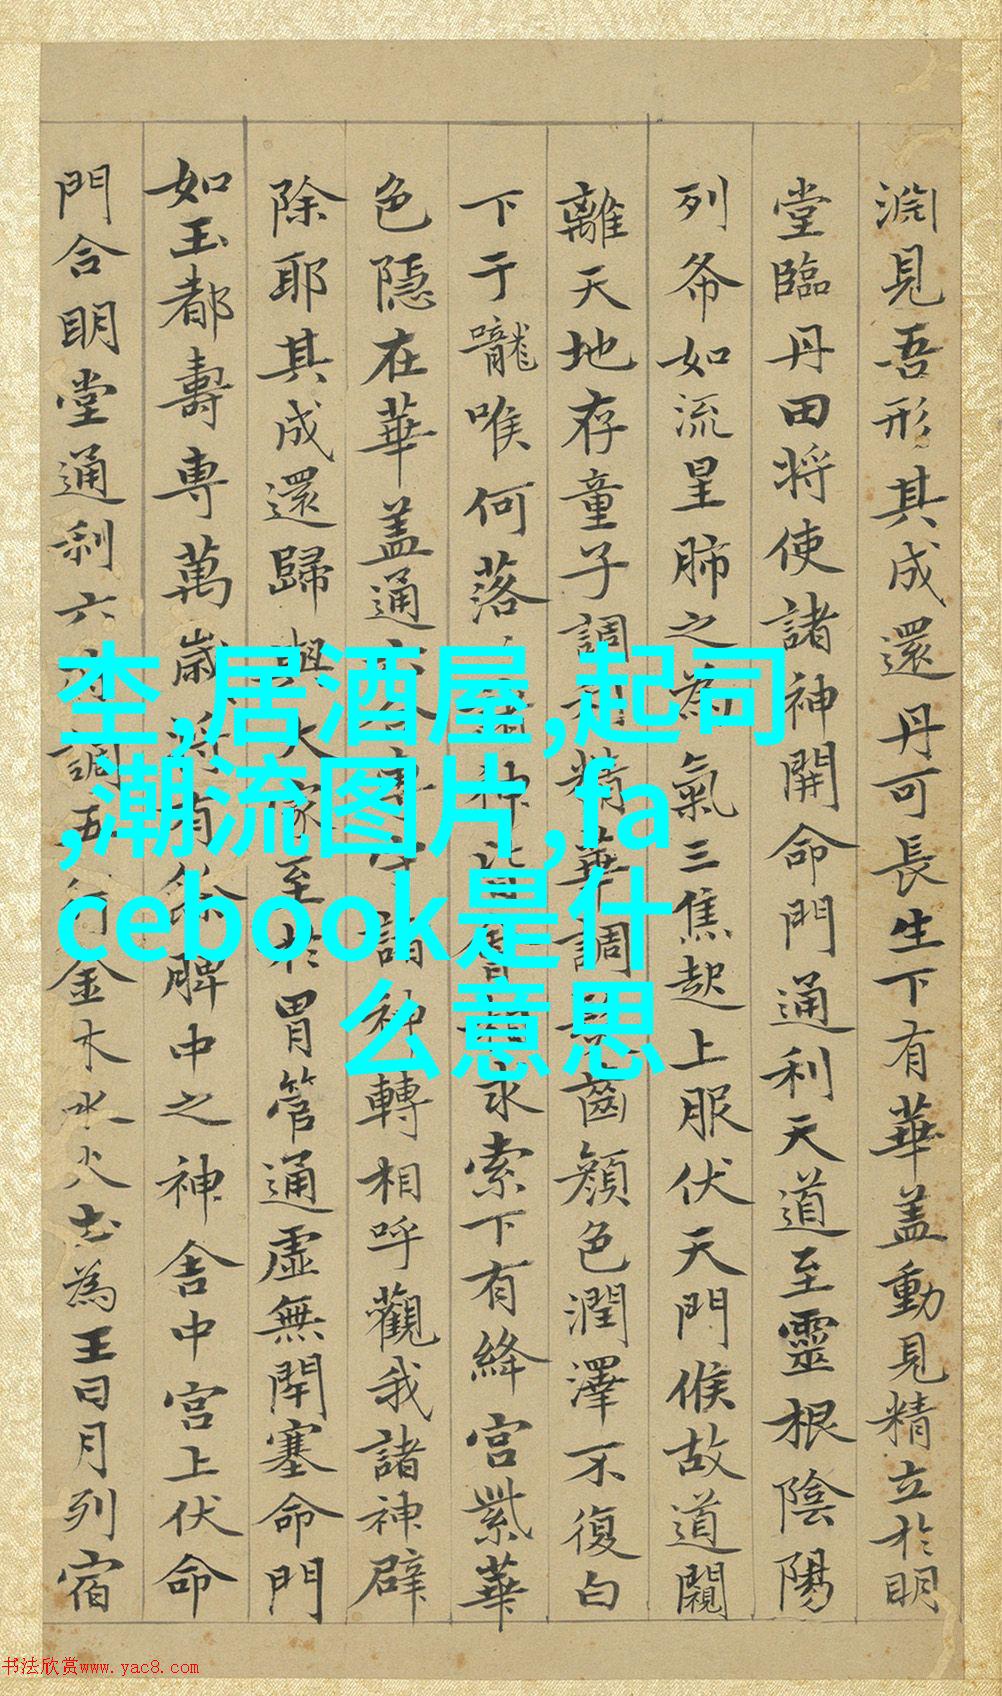 淵見吾形其成還丹可長生下有華盖動見精立於明
堂臨丹田将使諸神開命門通利天道至靈根陰陽
列布如流星肺之為氣三焦起上服伏天門候故道闚
離天地存童子調利精華調髮齒顔色潤澤不復白
下于嚨喉何落神皆會求索下有絳宮紫華
色隱在華盖通諸神轉相呼觀我諸神辟
除耶其成還歸與大家至於胃管通虛無閇塞命門
如玉都壽専萬歲将有餘脾中之神舍中宮上伏命
門合明堂通利六府調五行金木水火土為王日月列宿
杢,居酒屋,起司
,潮流图片,fa
cebook是什
么意思
书法欣赏www.yac8.com